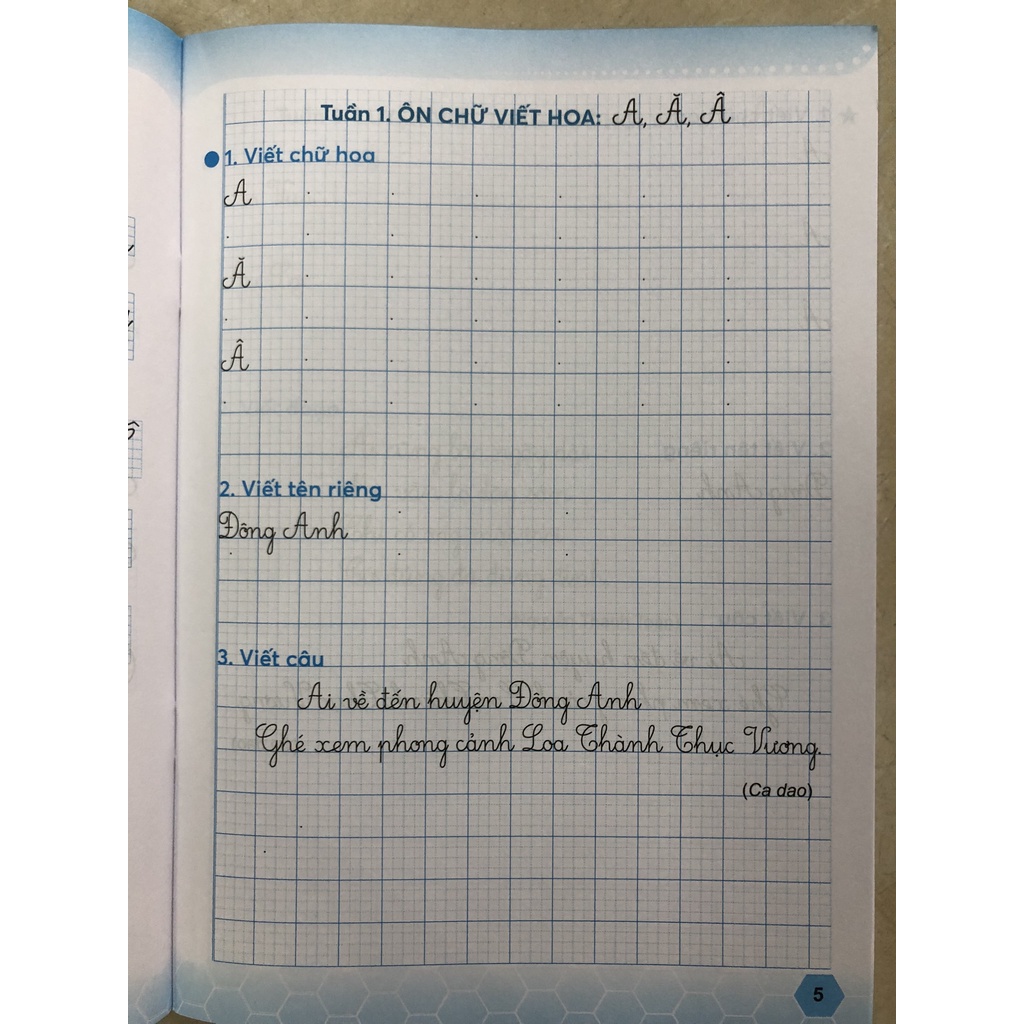 Tuần 1. ÔN CHỮ VIẾT HOA: A, Ă, Â
1. Viết chữ hoa
A
Ă
Â
2. Viết tên riêng
Đông Anh
3. Viết câu
Ai về đến huyện Đông Anh
Ghé xem phong cảnh Loa Thành Thục Vương.
(Ca dao)
5